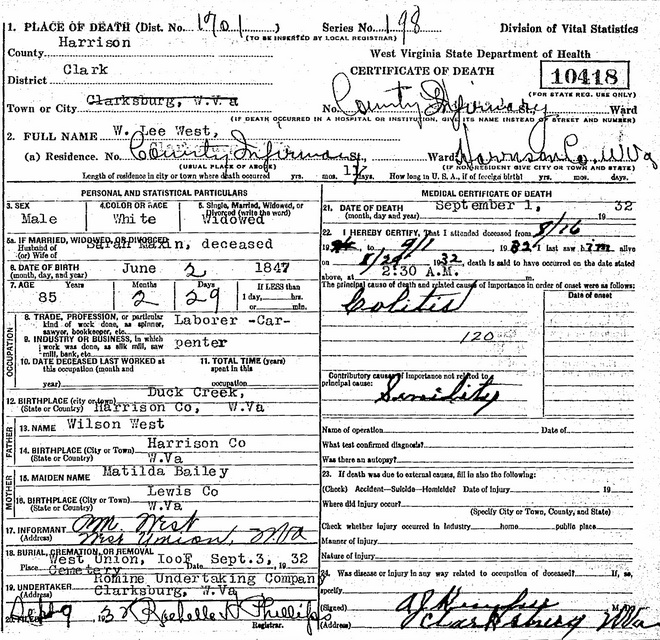 1. PLACE OF DEATH (Dist. No. 1701 Series No. 198 Division of Vital Statistics
(TO BE INSERTED BY LOCAL REGISTRAR)
County Harrison West Virginia State Department of Health
District Clark CERTIFICATE OF DEATH 10418
(FOR STATE REG. USE ONLY)
Town or City Clarksburg, W.V.a No. County Infirmary Ward
(IF DEATH OCCURRED IN A HOSPITAL OR INSTITUTION, GIVE ITS NAME INSTEAD OF STREET AND NUMBER)
2. FULL NAME W. Lee West,
(a) Residence. No. County Infirmary St., Ward Harrison Co. W Va
(USUAL PLACE OF ABODE) (IF NONRESIDENT GIVE CITY OR TOWN AND STATE)
Length of residence in city or town where death occurred yrs. mos. 17 days. How long in U. S. A., if of foreign birth? yrs. mos. days.
PERSONAL AND STATISTICAL PARTICULARS
3. SEX Male
4. COLOR OR RACE White
5. Single, Married, Widowed, or Divorced (write the word) Widowed
5a. IF MARRIED, WIDOWED, OR DIVORCED
Husband of Sarah Maxin, deceased
(or) Wife of
6. DATE OF BIRTH (month, day, and year) June 2 1847
7. AGE Years Months Days If LESS than
85 2 29 1 day, hrs.
or min.
OCCUPATION
8. TRADE, PROFESSION, or particular kind of work done, as spinner, sawyer, bookkeeper, etc. Laborer -Car-
9. INDUSTRY OR BUSINESS, in which work was done, as silk mill, saw mill, bank, etc. penter
10. DATE DECEASED LAST WORKED at this occupation (month and year)
11. TOTAL TIME (years) spent in this occupation
12. BIRTHPLACE (city or town) Duck Creek,
(State or Country) Harrison Co, W.Va
FATHER
13. NAME Wilson West
14. BIRTHPLACE (City or Town) Harrison Co
(State or Country) W.Va
MOTHER
15. MAIDEN NAME Matilda Bailey
16. BIRTHPLACE (City or Town) Lewis Co
(State or Country) W.Va
17. INFORMANT Wm. West
(Address) West Union, W Va
18. BURIAL, CREMATION, OR REMOVAL
Place West Union, IooF Cemetery Date Sept.3, 19 32
19. UNDERTAKER Romine Undertaking Company
(Address) Clarksburg, W.Va
20. FILED Sept 9 1932 Rochelle Phillips
Registrar.
MEDICAL CERTIFICATE OF DEATH
21. DATE OF DEATH (month, day and year) September 1, 19 32
22. I HEREBY CERTIFY, That I attended deceased from 8/16
19 to 9/1 1932 I last saw him alive
on 8/29 1932, death is said to have occurred on the date stated
above, at 2:30 A.M. m.
The principal cause of death and related causes of importance in order of onset were as follows:
Date of onset
Colitis
120
Contributory causes of importance not related to principal cause:
Senility
Name of operation Date of
What test confirmed diagnosis?
Was there an autopsy?
23. If death was due to external causes, fill in also the following:
(Check) Accident—Suicide—Homicide? Date of Injury 19
Where did injury occur?
(Specify City or Town, County, and State)
Check whether injury occurred in Industry home public place
Manner of injury
Nature of injury
24. Was disease or injury in any way related to occupation of deceased? If, so,
specify
(Signed) M. D.
(Address) Clarksburg W Va